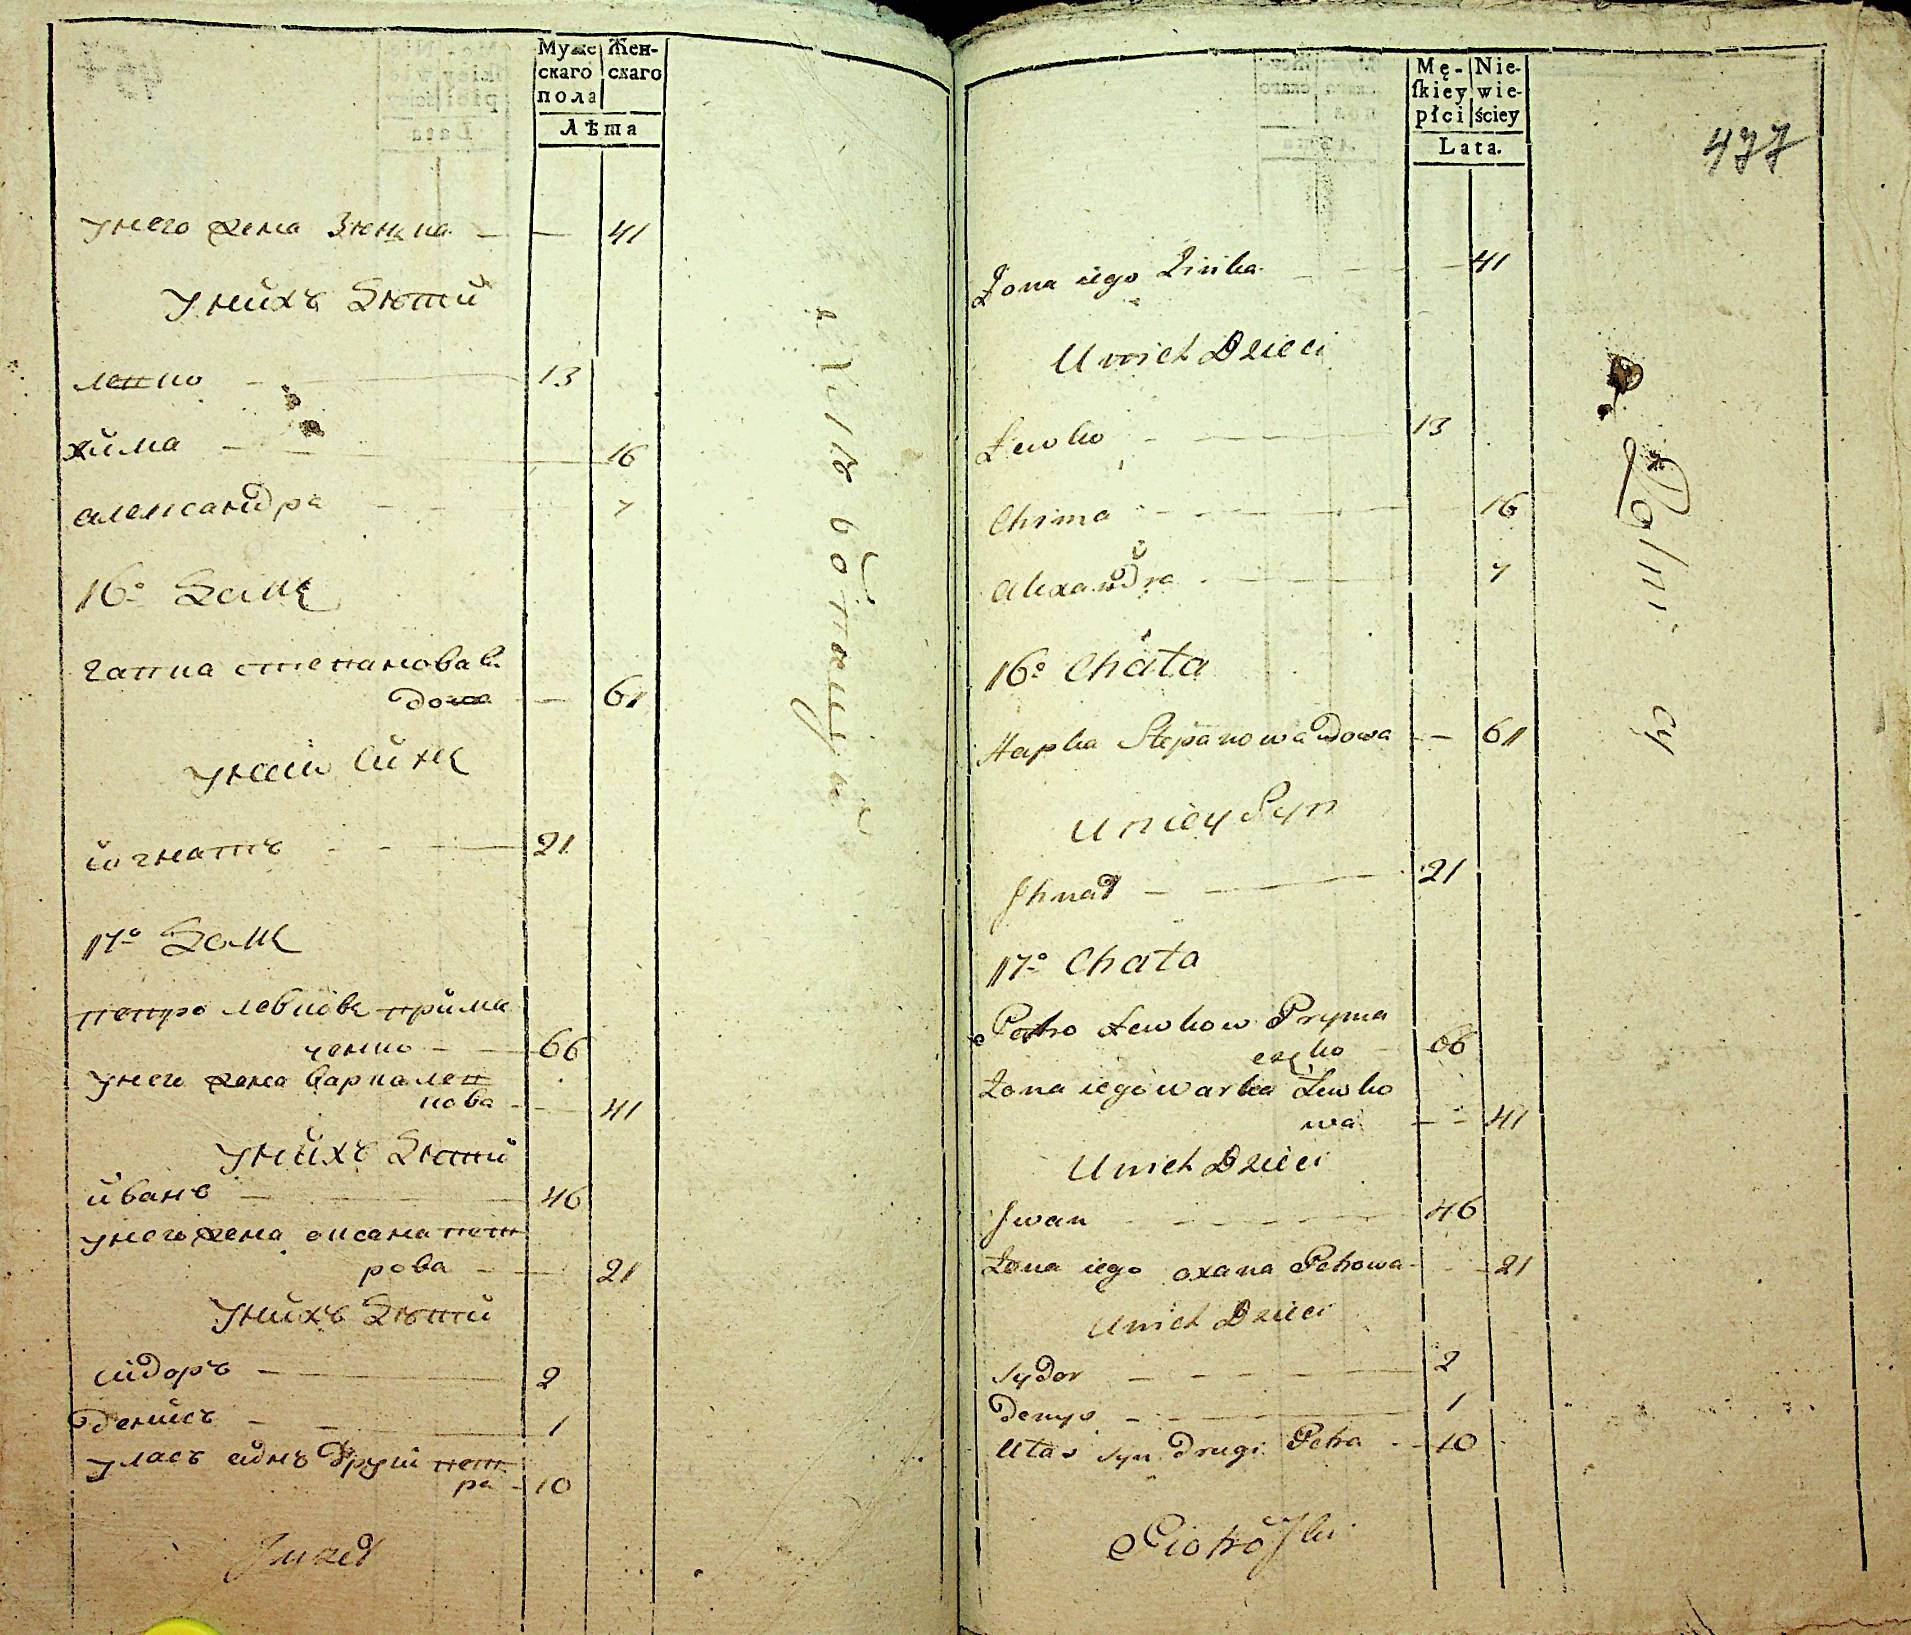 Муже Жен-
скаго скаго
пола
Лѣта
унего жена Зюнка — 41
унихъ Дѣти
левко — 13
хима — 16
александра — 7
16º Домъ
гапка степанова в
дова — 61
унеи синъ
игнатъ — 21
17º Домъ
петро левковъ прима
ченко — 66
унего жена варка лев
кова — 41
унихъ Дѣти
иванъ — 46
унего жена оксана пет
рова — 21
унихъ Дѣти
сидоръ — 2
денисъ — 1
уласъ синъ другий пет
ра — 10
Mę- Nie-
ſkiey wie-
płci ściey
Lata.
477
Żona iego Zinka — 41
U nich Dzieci
Lewko — 13
Chima — 16
Alexandra — 7
16º Chata
Hapka Stepanowa wdowa — 61
U niey Syn
Jhnat — 21
17º Chata
Petro Lewkow Pryma
częko — 66
Żona iego warka Lewko
wa — 41
U nich Dzieci
Jwan — 46
Żona iego oxana Petrowa — 21
U nich Dzieci
Sydor — 2
Denys — 1
Ułas syn drugi Petra — 10